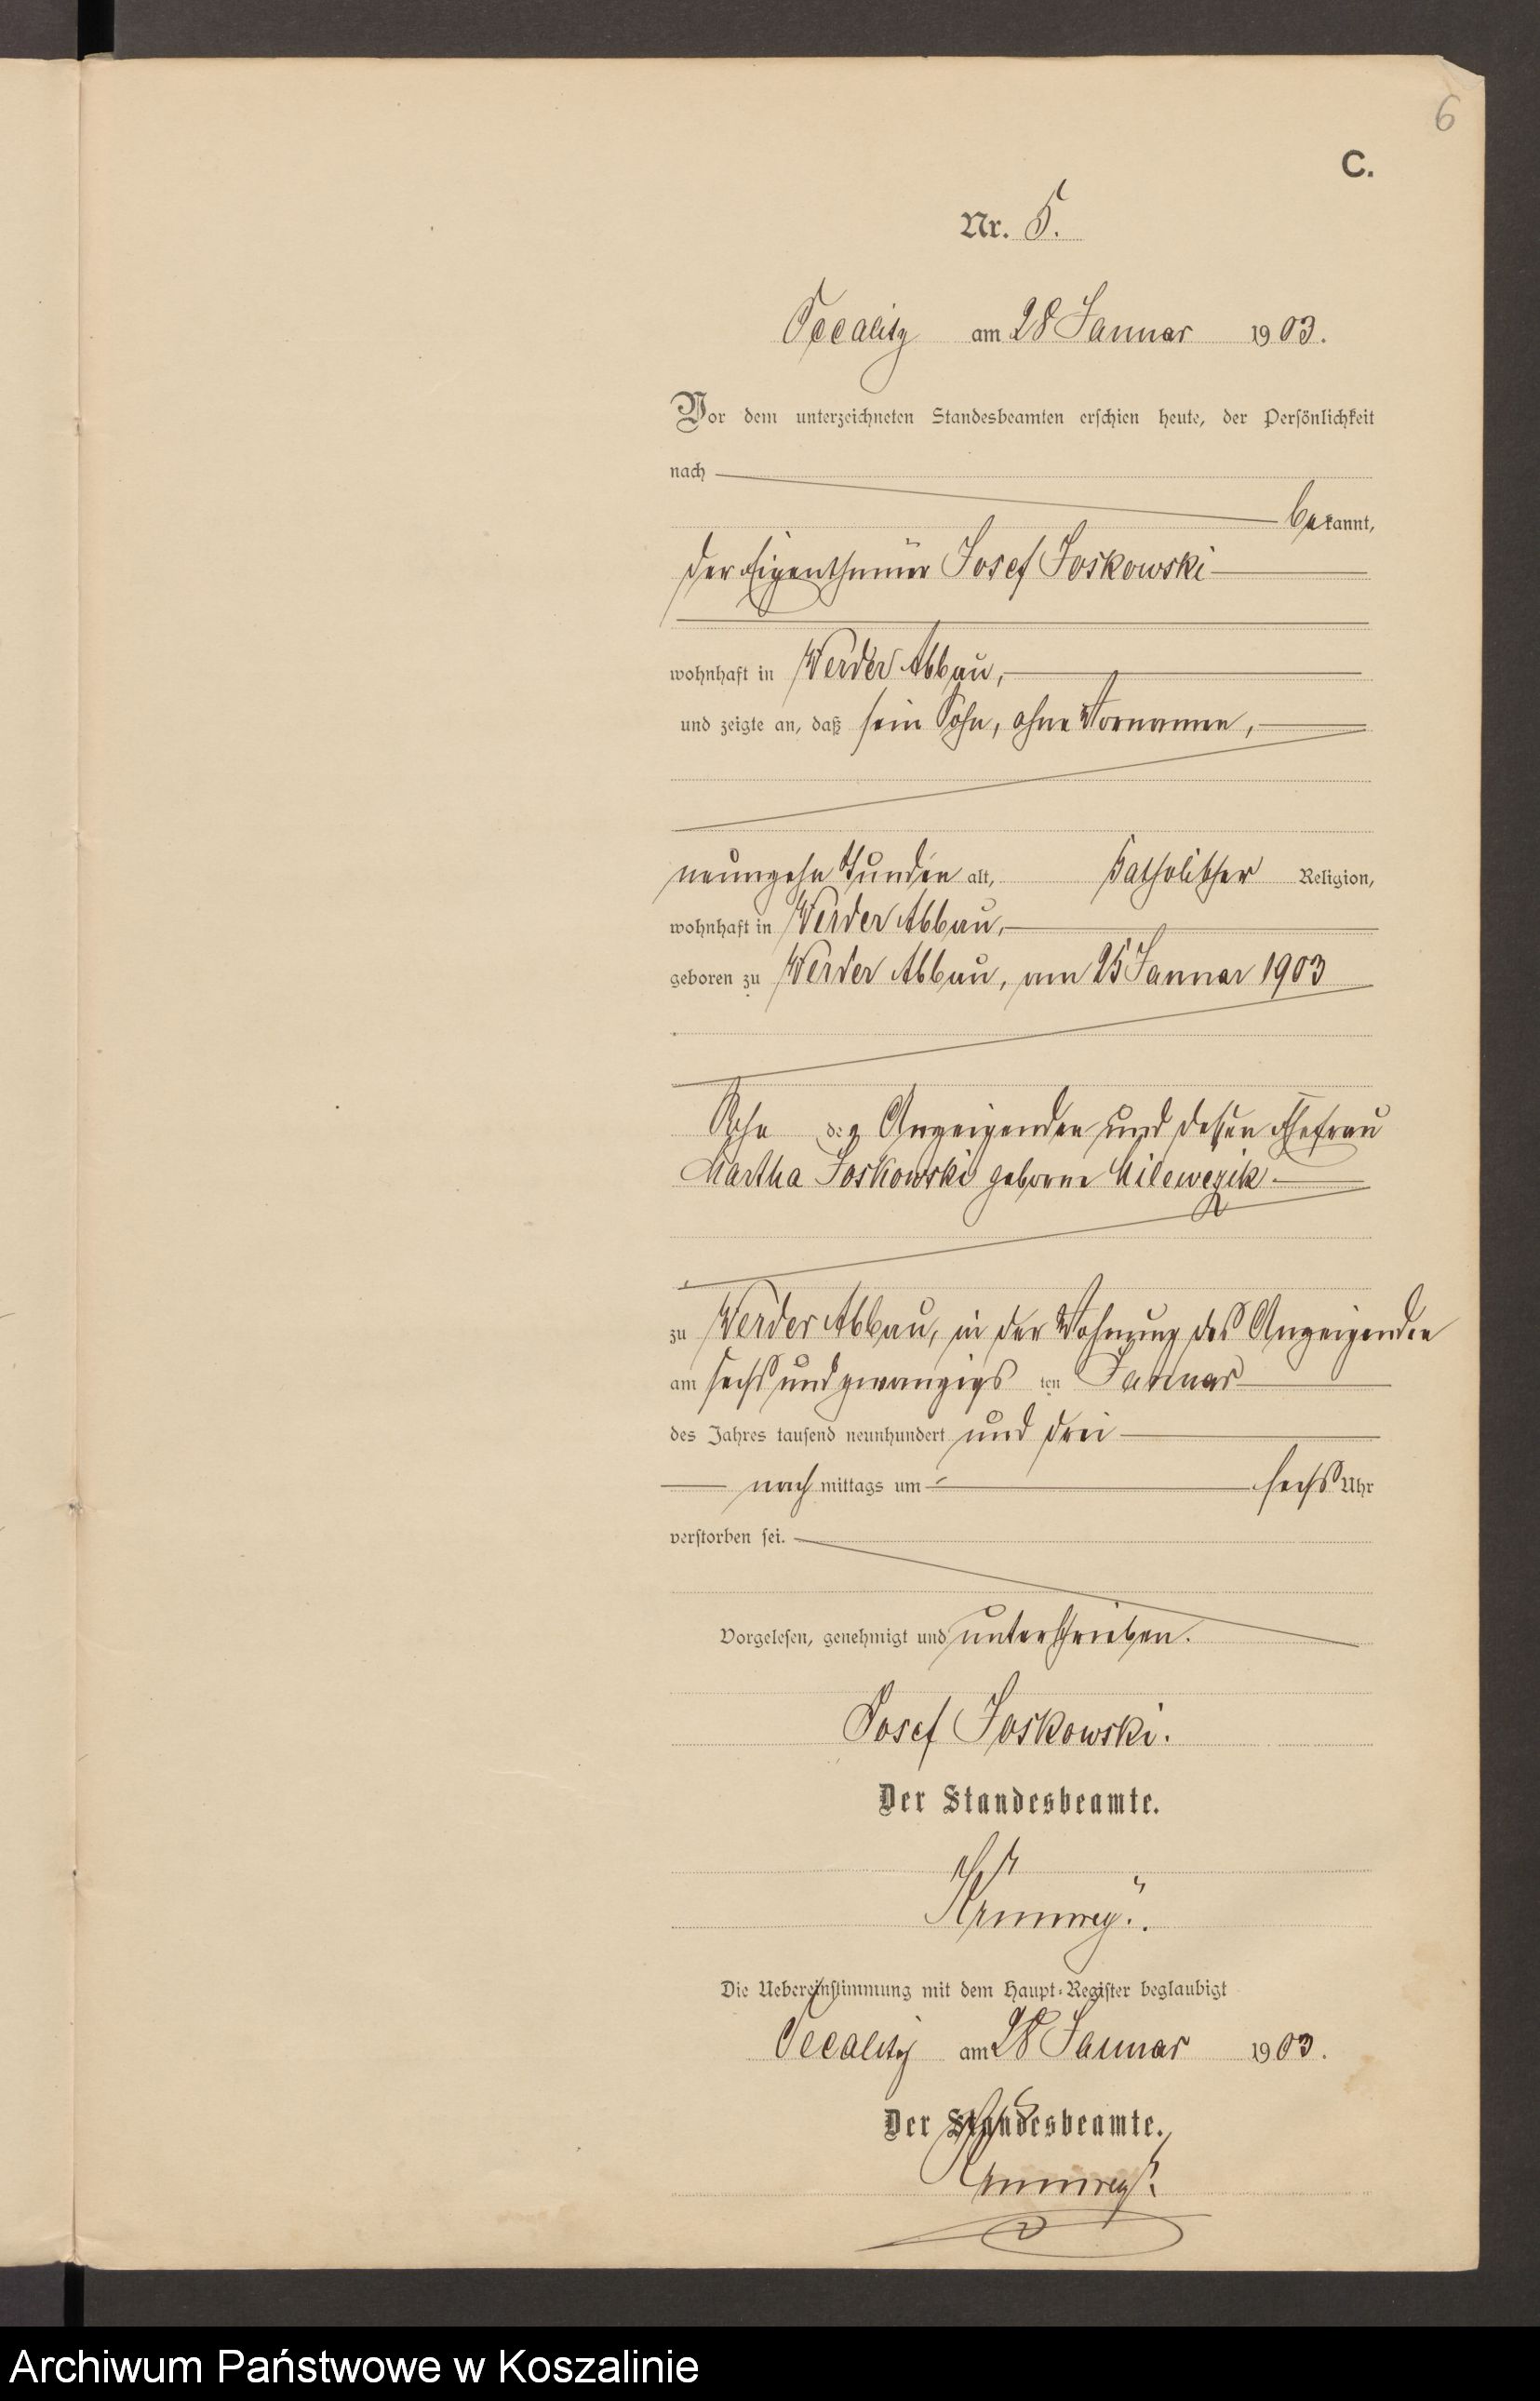 6
C.
Nr. 5.
am 28 Januar 1903.
Vor dem unterzeichneten Standesbeamten erschien heute, der Persönlichkeit
nach
bekannt,
der Eigenthümer Josef Joskowski
wohnhaft in Werder Abbau,
und zeigte an, daß sein Sohn, ohne Vornamen,
neunzehn Stunden alt, katholischer Religion,
wohnhaft in Werder Abbau,
geboren zu Werder Abbau, am 25 Januar 1903
Sohn des Anzeigenden und dessen Ehefrau
Martha Joskowski geborne Milewczik
zu Werder Abbau, in der Wohnung des Anzeigenden
am sechs und zwanzigs ten Januar
des Jahres tausend neunhundert und drei
nach mittags um sechs Uhr
verstorben sei.
Vorgelesen, genehmigt und unterschrieben.
Josef Joskowski.
Der Standesbeamte.
Die Uebereinstimmung mit dem Haupt-Register beglaubigt
am 28 Januar 1903.
Der Standesbeamte.
Archiwum Państwowe w Koszalinie